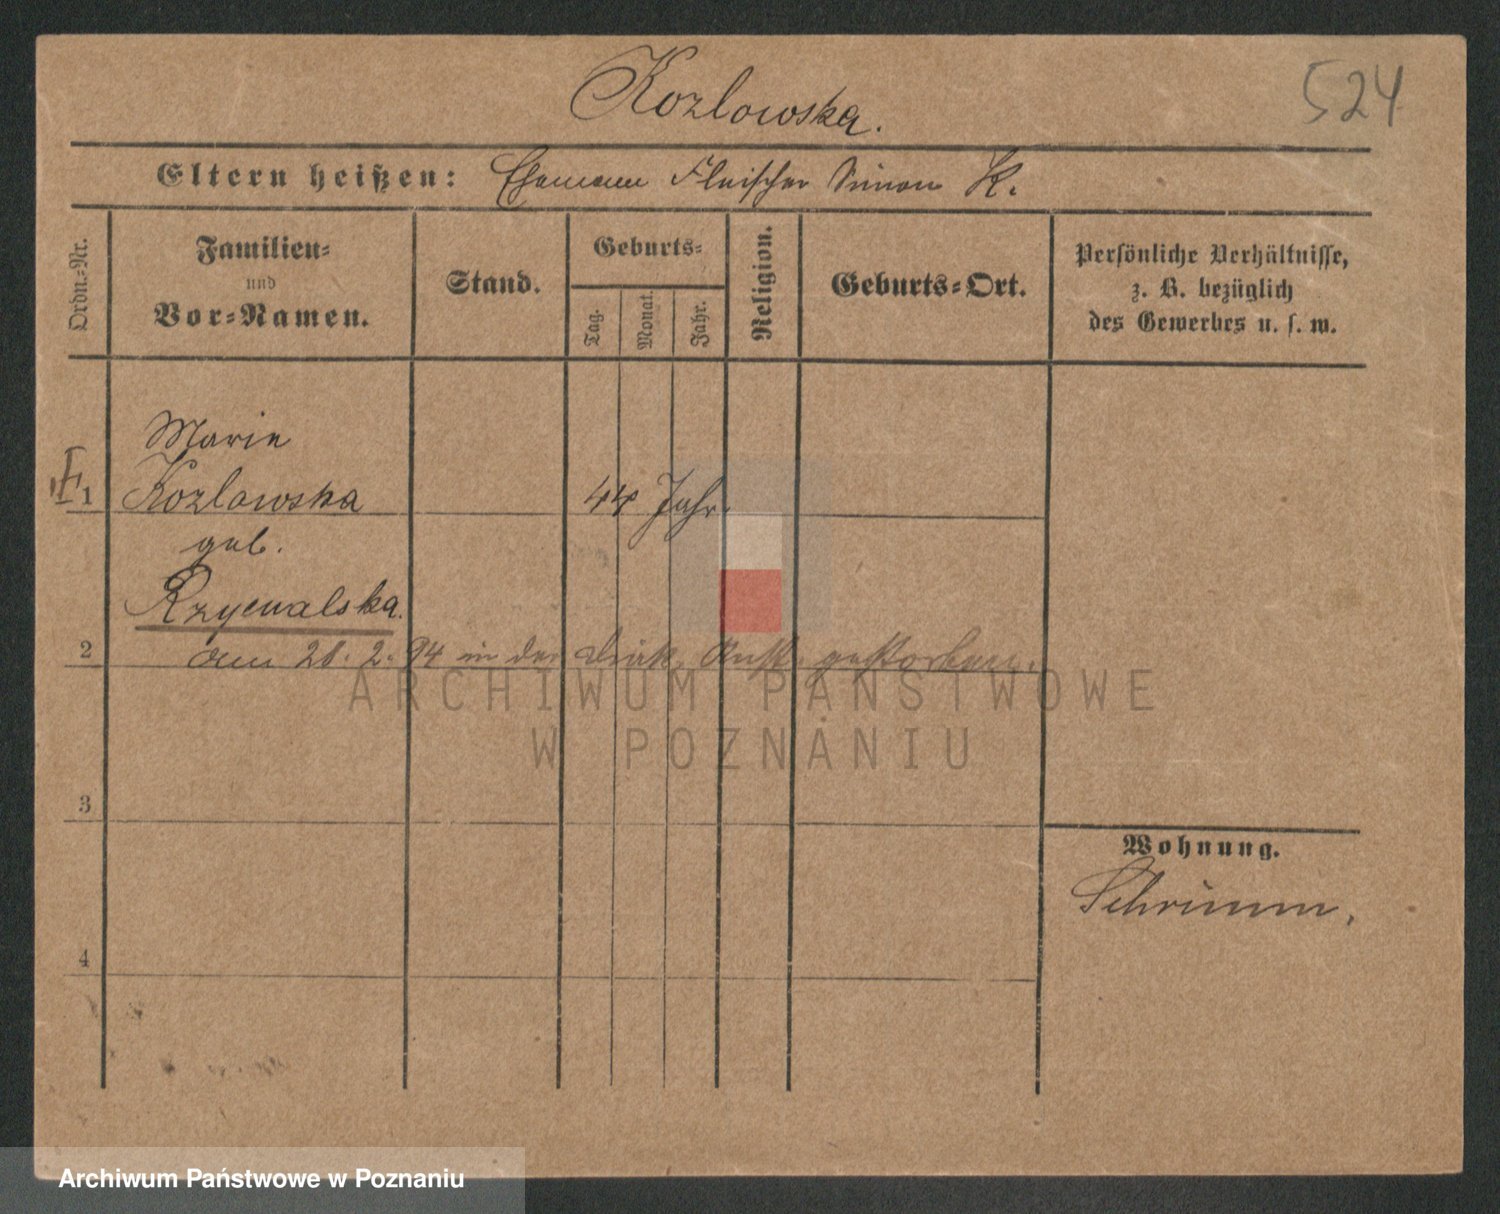 Kozlowska.
524
Eltern heißen: Ehemann Fleischer Simon K.
Ordn.-Nr.
Familien-
und
Vor-Namen.
Stand.
Geburts-
Tag.
Monat.
Jahr.
Religion.
Geburts-Ort.
Persönliche Verhältnisse,
z. B. bezüglich
des Gewerbes u. s. w.
Marie
F 1 Kozlowska 44 Jahr.
geb.
Rzyewalska.
2 am 28. 2. 94 in der Diak. Anst. gestorben.
ARCHIWUM PAŃSTWOWE
W POZNANIU
3
Wohnung.
Schrimm,
4
Archiwum Państwowe w Poznaniu